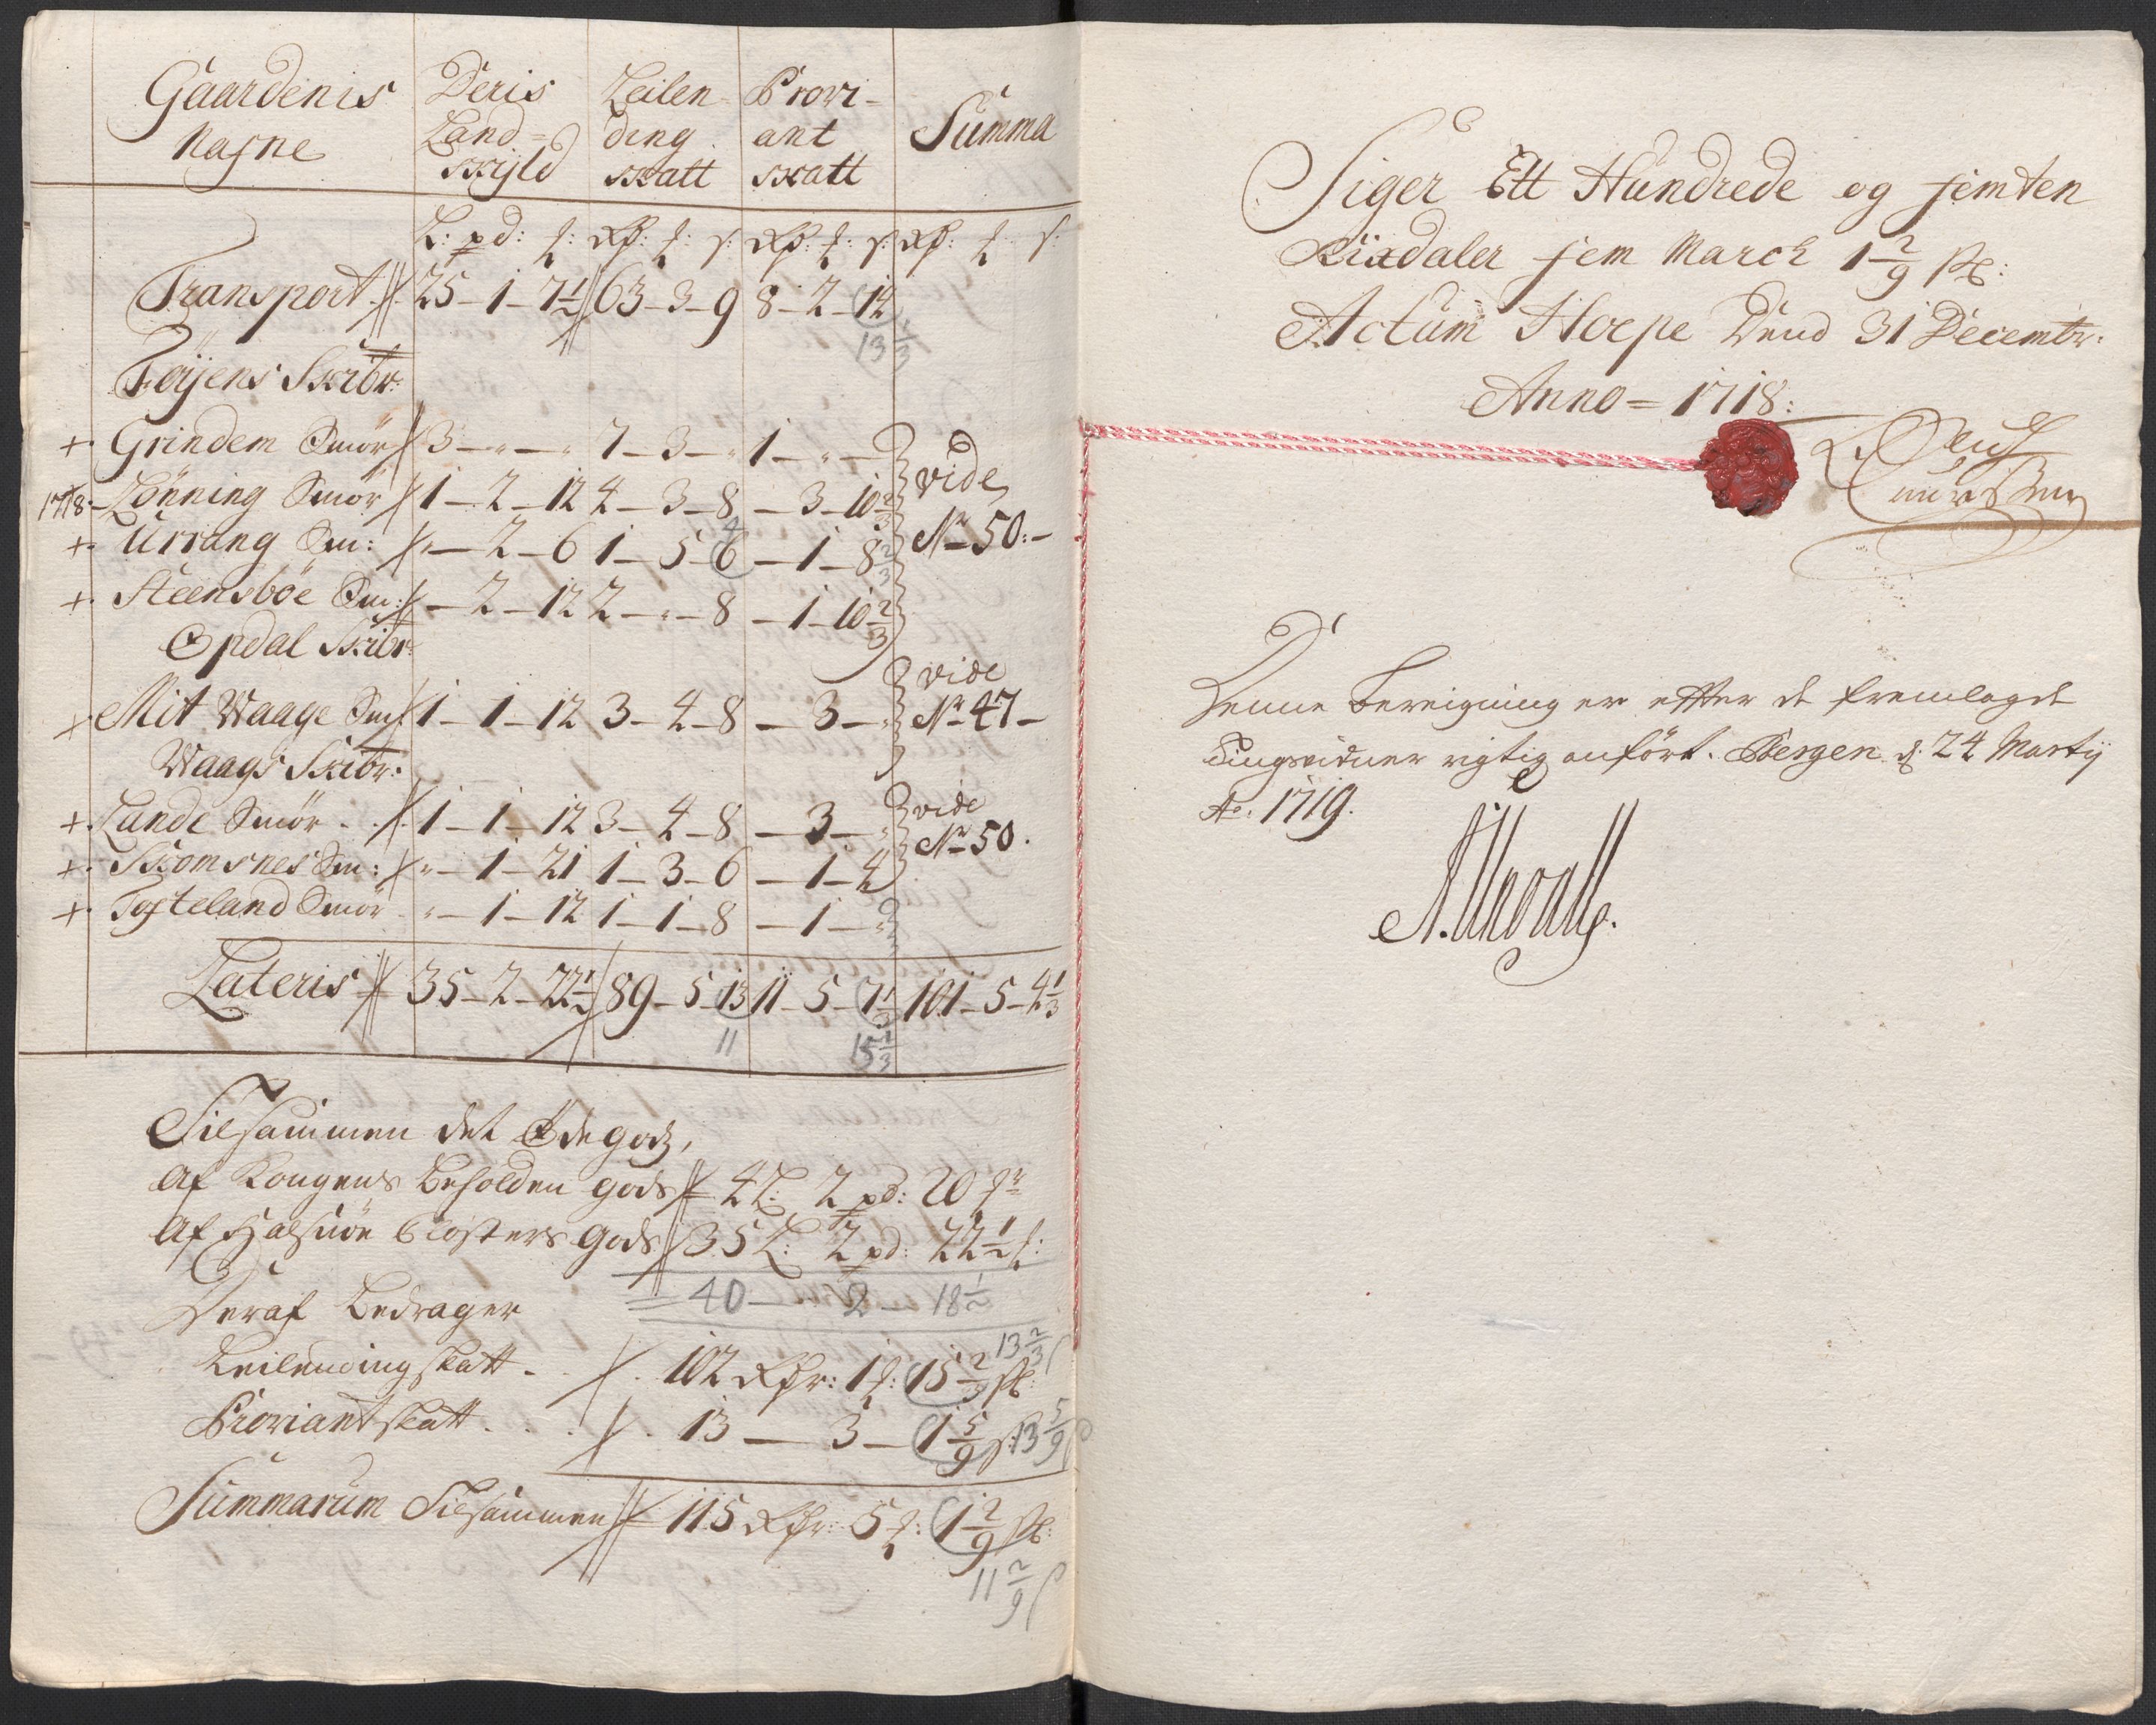 Gaardenis Nafne | Deris Land= skyld | Leilen ding skatt | Provi- ant skatt | Summa
L: pd: | Rd: | Rd: | Rd:
Transport 25 - 1 - 7 1/2 63 - 3 - 9 8 - 2 - 12
13 1/3
Føijens Skibr:
+ Grindem Smør 3 - " - " 7 - 3 - " 1 - " -
1718 - Lønning Smør 1 - 2 - 12 4 - 3 - 8 - 3 - 10 2/3 vide
+ Urrang Sm: " - 2 - 6 1 - 5 - 6 4 - 1 - 8 2/3 No 50:-
+ Steensbøe Sm: - 2 - 12 2 - " - 8 - 1 - 10 2/3
Opdal Skibr:
+ Mit Waage Sm: 1 - 1 - 12 3 - 4 - 8 - 3 - " vide No 47 -
Waags Skibr:
+ Lande Smør 1 - 1 - 12 3 - 4 - 8 - 3 - " vide
+ Skomsnes Sm: " - 1 - 21 1 - 3 - 6 - 1 - 4 No 50.
+ Tofteland Smør " - 1 - 12 1 - 1 - 8 - 1 - "
Lateris 35 - 2 - 22 1/2 89 - 5 - 13 11 - 5 - 7 1/3 101 - 5 - 4 1/3
11 15 2/3
Tilsammen det Øde gods,
Af Kongens beholden gods 4 L: 2 pd: 20
Af Halsnøe Closters gods 35 L: 2 pd: 22 1/2
40 - 2 - 18 1/2
Deraf bedrager
13 2/3
Leilending skatt - 102 Rdr: 1 15 2/3 sk:
Proviant skatt . . . 13 - 3 - 1 5/9 s: 13 5/9
Summarum Tilsammen 115 Rdr: 5 1 2/9 sk:
11 2/9
Siger Ett Hundrede og femten
Rixdaler fem March 1 2/9 sk:
Actum Hoepe Dend 31 Decembr:
Anno = 1718:
Denne bereigning er efter de fremlagde
Tingsvidner rigtig anført. Bergen d: 24 Martij
Ao. 1719.